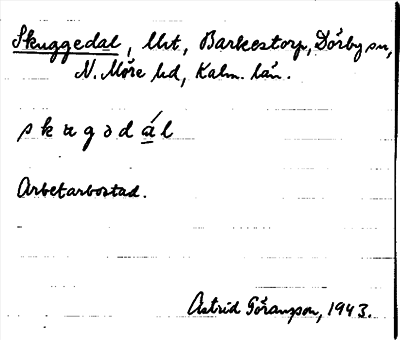 Skuggedal, lht, Barkestorp, Dörby sn,
N. Möre hd, Kalm. län.
skugədál
Arbetarbostad.
Astrid Göranson, 1943.